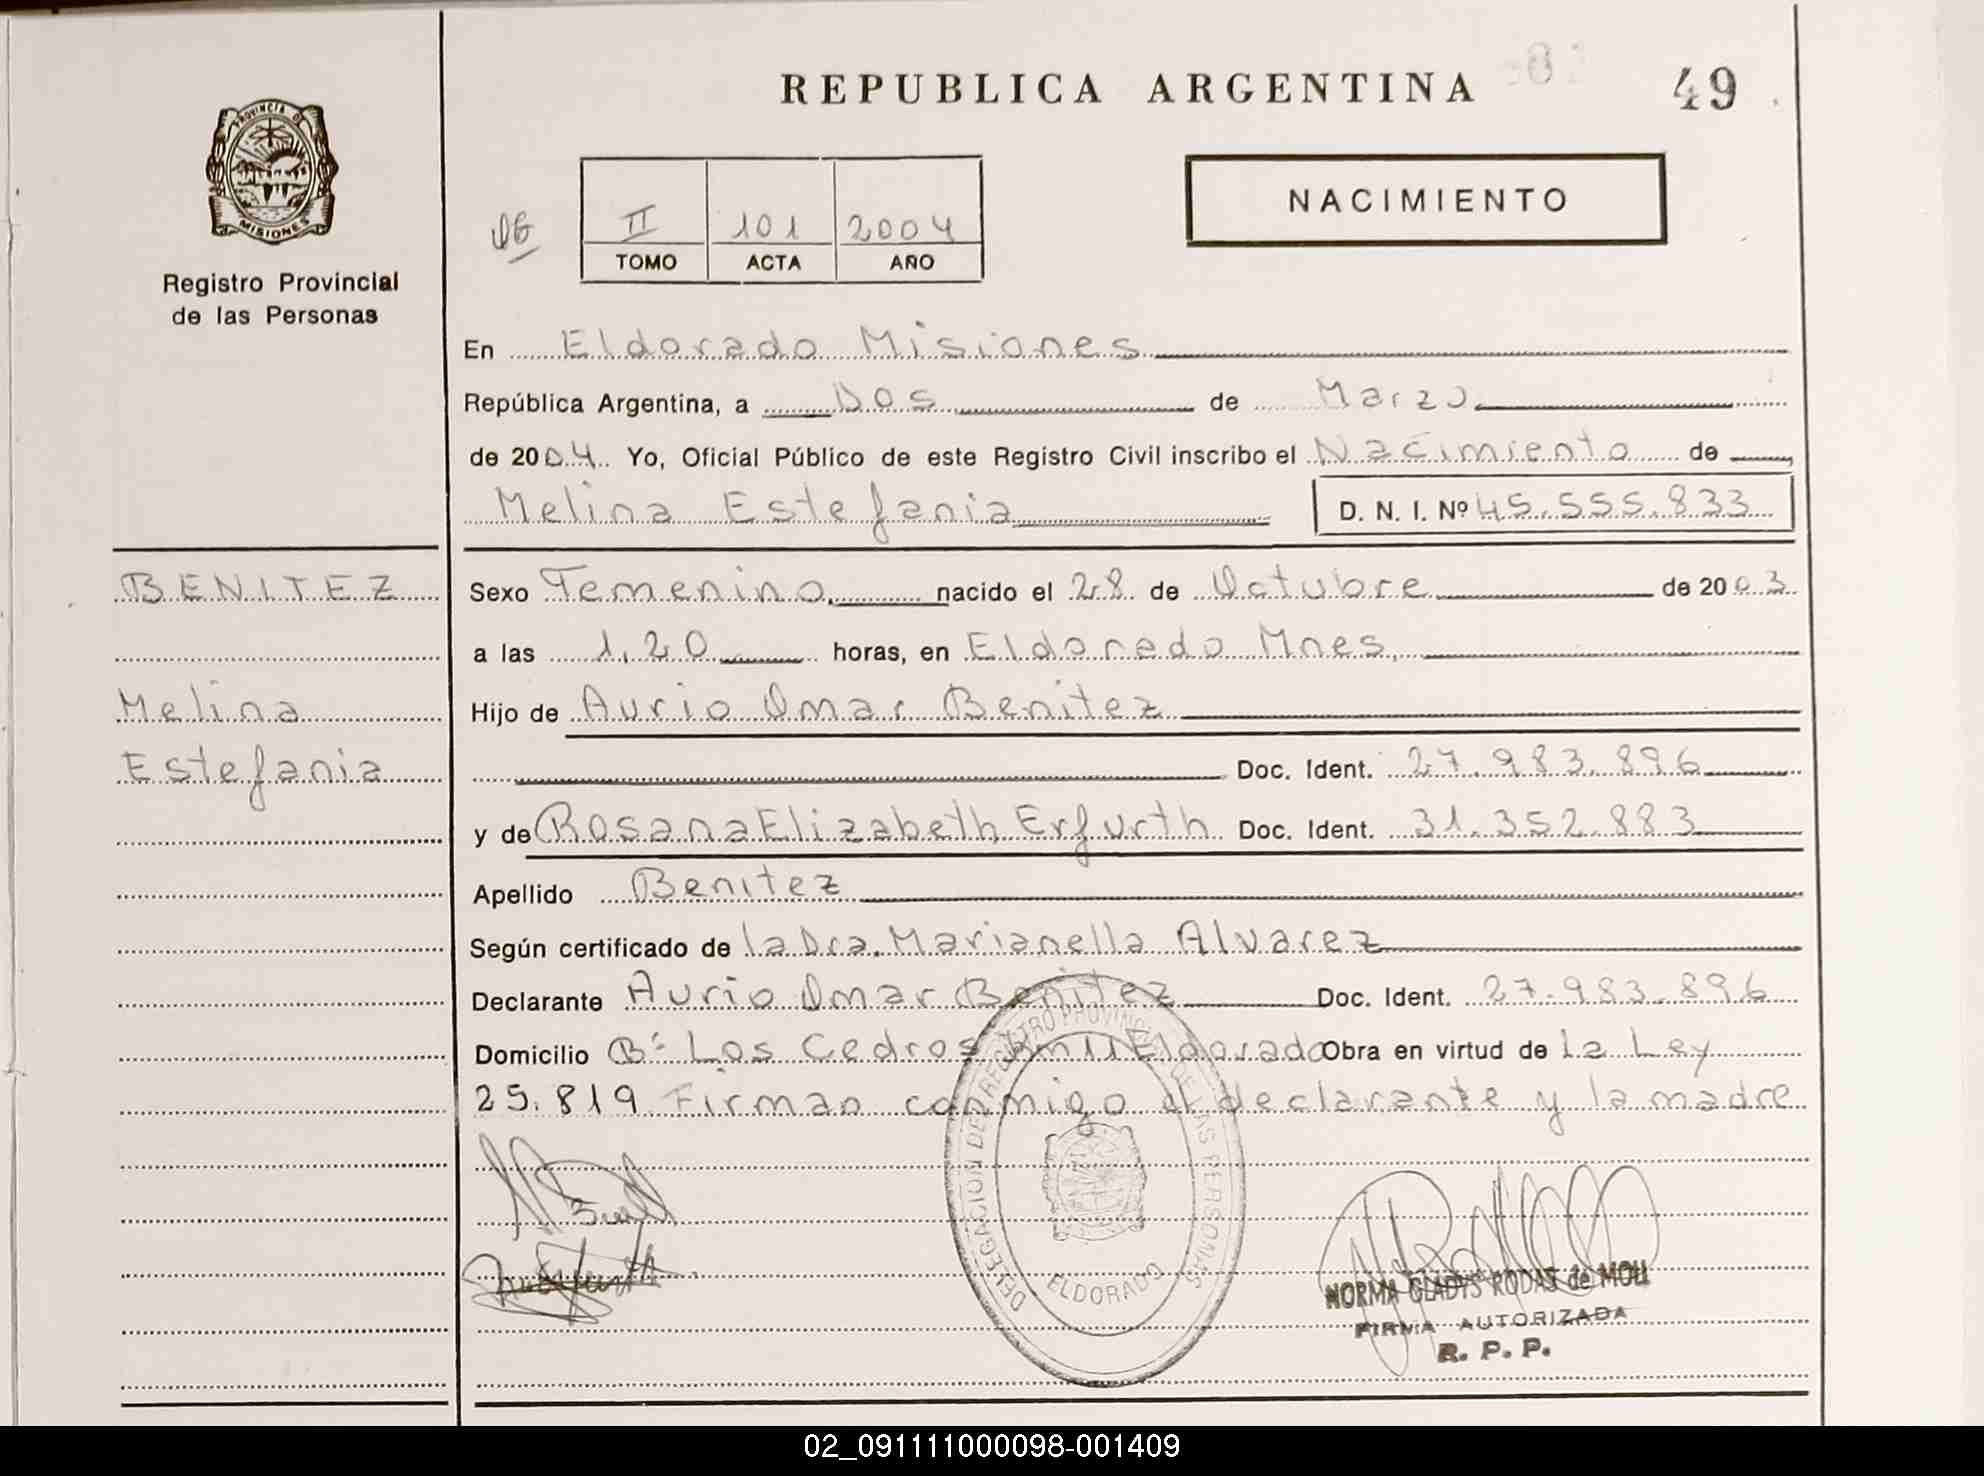 REPUBLICA ARGENTINA
49
PROVINCIA DE
MISIONES
Registro Provincial
de las Personas
II 101 2004
TOMO ACTA AÑO
NACIMIENTO
En Eldorado Misiones
República Argentina, a Dos de Marzo
de 2004. Yo, Oficial Público de este Registro Civil inscribo el Nacimiento de
Melina Estefania D. N. I. Nº 45.555.833
BENITEZ
Melina
Estefania
Sexo Femenino. nacido el 28 de Octubre de 2003
a las 1,20 horas, en Eldorado Mnes.
Hijo de Aurio Omar Benitez
Doc. Ident. 27.983.896
y de Rosana Elizabeth Erfurth Doc. Ident. 31.352.883
Apellido Benitez
Según certificado de la Dra. Marianella Alvarez
Declarante Aurio Omar Benitez Doc. Ident. 27.983.896
Domicilio Bº Los Cedros km 11 Eldorado Obra en virtud de la Ley
25.819 Firman conmigo el declarante y la madre
DELEGACION DE REGISTRO PROVINCIAL DE LAS PERSONAS
ELDORADO
NORMA GLADYS RODAS de MOLL
FIRMA AUTORIZADA
R. P. P.
02_091111000098-001409